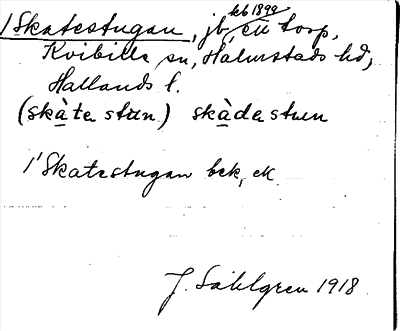 1 Skatestugan, jb, ett torp,
kbl 1899
Kvibille sn, Halmstads hd,
Hallands l.
(skàte stùn) skàdestuen
1' Skatestugan bek, ek
J. Sahlgren 1918